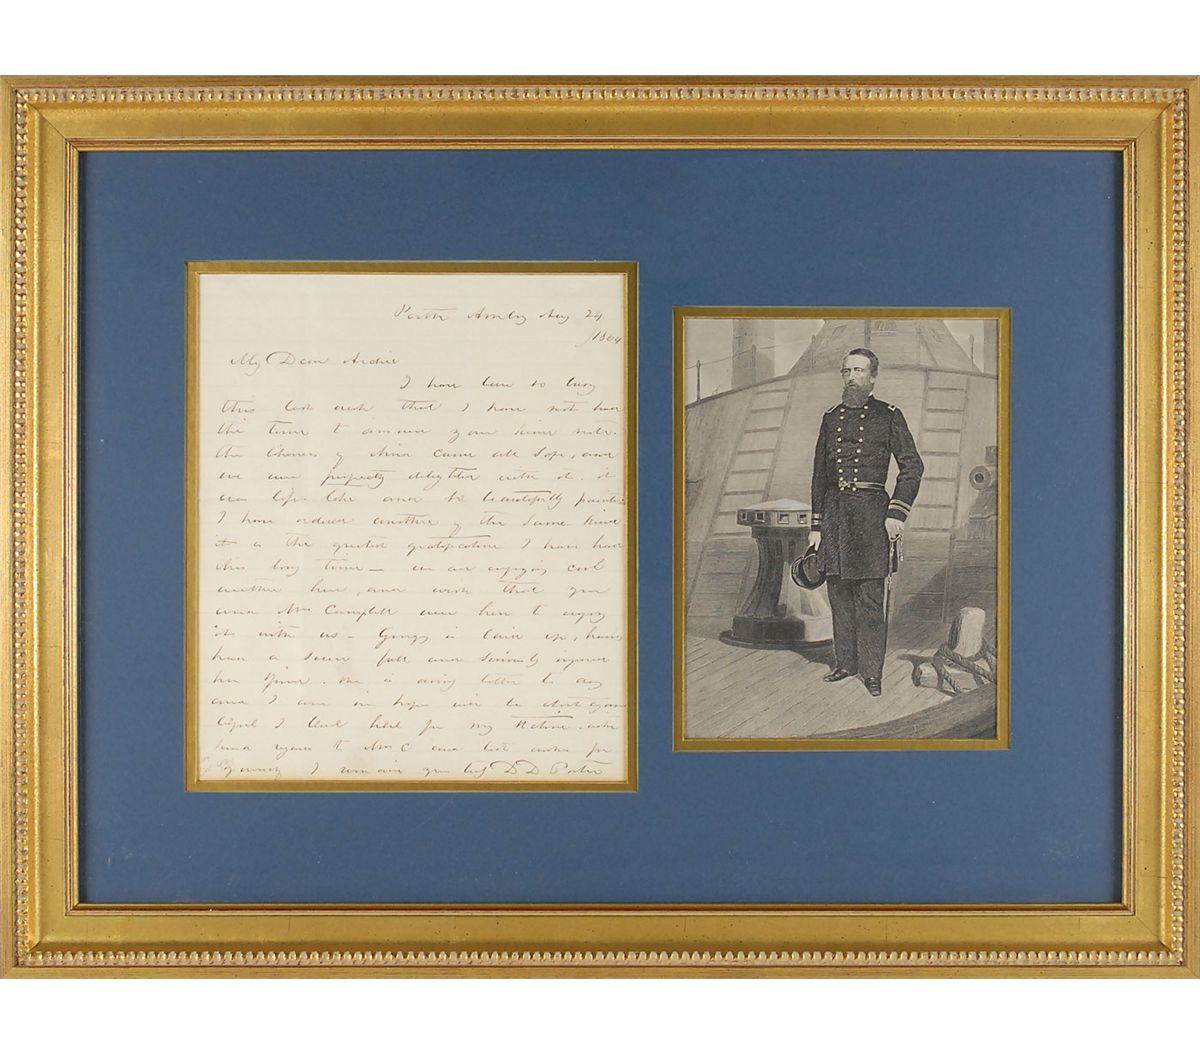 Perth Amboy Aug 24
/1864
My Dear Archie
I have been so busy
this last week that I have not had
the time to answer your kind note.
the likeness of Nina came all safe, and
we are perfectly delighted with it. it
was life like and so beautifully painted
I have ordered another of the same kind
it is the greatest gratification I have had
this long time — we are enjoying cool
weather here, and wish that you
and Mrs Campbell were here to enjoy
it with us — is laid up, having
had a severe fall and seriously injured
her spine. she is doing better to day
and I am in hopes will be about again
before I leave here for my station. with
kind regards to Mrs C and best wishes for
yourself I remain yours truly D D Porter